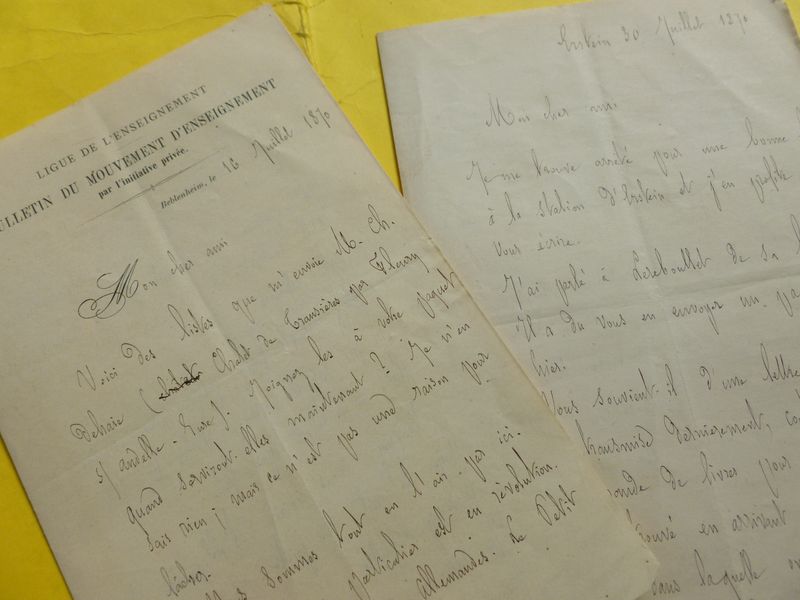 LIGUE DE L'ENSEIGNEMENT
ULLETIN DU MOUVEMENT D'ENSEIGNEMENT
par l'initiative privée.
Beblenheim, le 16 Juillet 1870
Mon cher ami
Voici des listes que m'envoie M. Ch.
Dehais ( Chalet de Transières par Fleury
s/ andelle - Eure). Joignez les à votre paquet
quand serviront elles maintenant? Je n'en
sais rien; mais ce n'est pas une raison pour
lâcher.
sommes tout en l'air par ici.
particulier est en révolution.
allemandes. Le Petit
Erstein 30 Juillet 1870
Mon cher ami
Je me trouve arrêté pour une bonne
à la station d'Erstein et j'en profite
vous écrire.
J'ai parlé à Lereboullet de sa
Il a du vous en envoyer un
hier.
Vous souvient il d'une lettre
transmise dernièrement,
de livres pour
trouvé en arrivant
dans laquelle